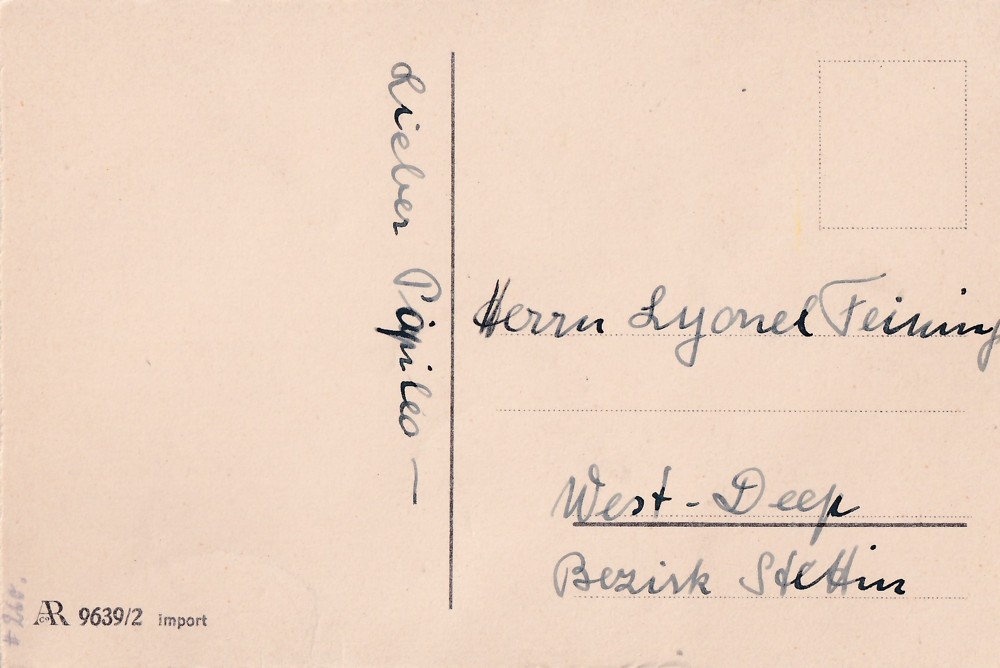 Lieber Papileo —
Herrn Lyonel Feining
West-Deep
Bezirk Stettin
AR 9639/2 import